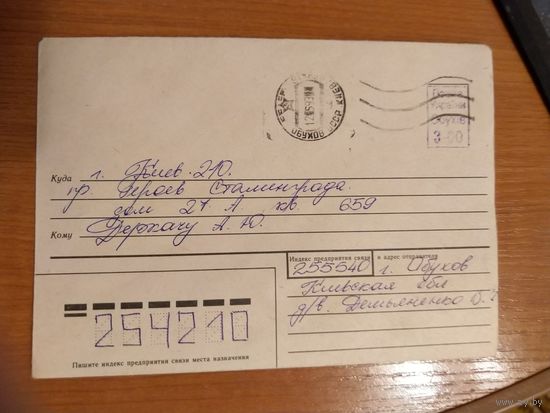 12 05 93
ОБУХОВ
Пошта
України
Обухів
3-00
Куда г. Киев-210.
пр. Героев Сталинграда.
дом 27 А кв. 659
Кому Деркачу А. Ю.
Индекс предприятия связи и адрес отправителя
255540 г. Обухов
Киевская обл
д/в. Демьяненко
254210
Пишите индекс предприятия связи места назначения